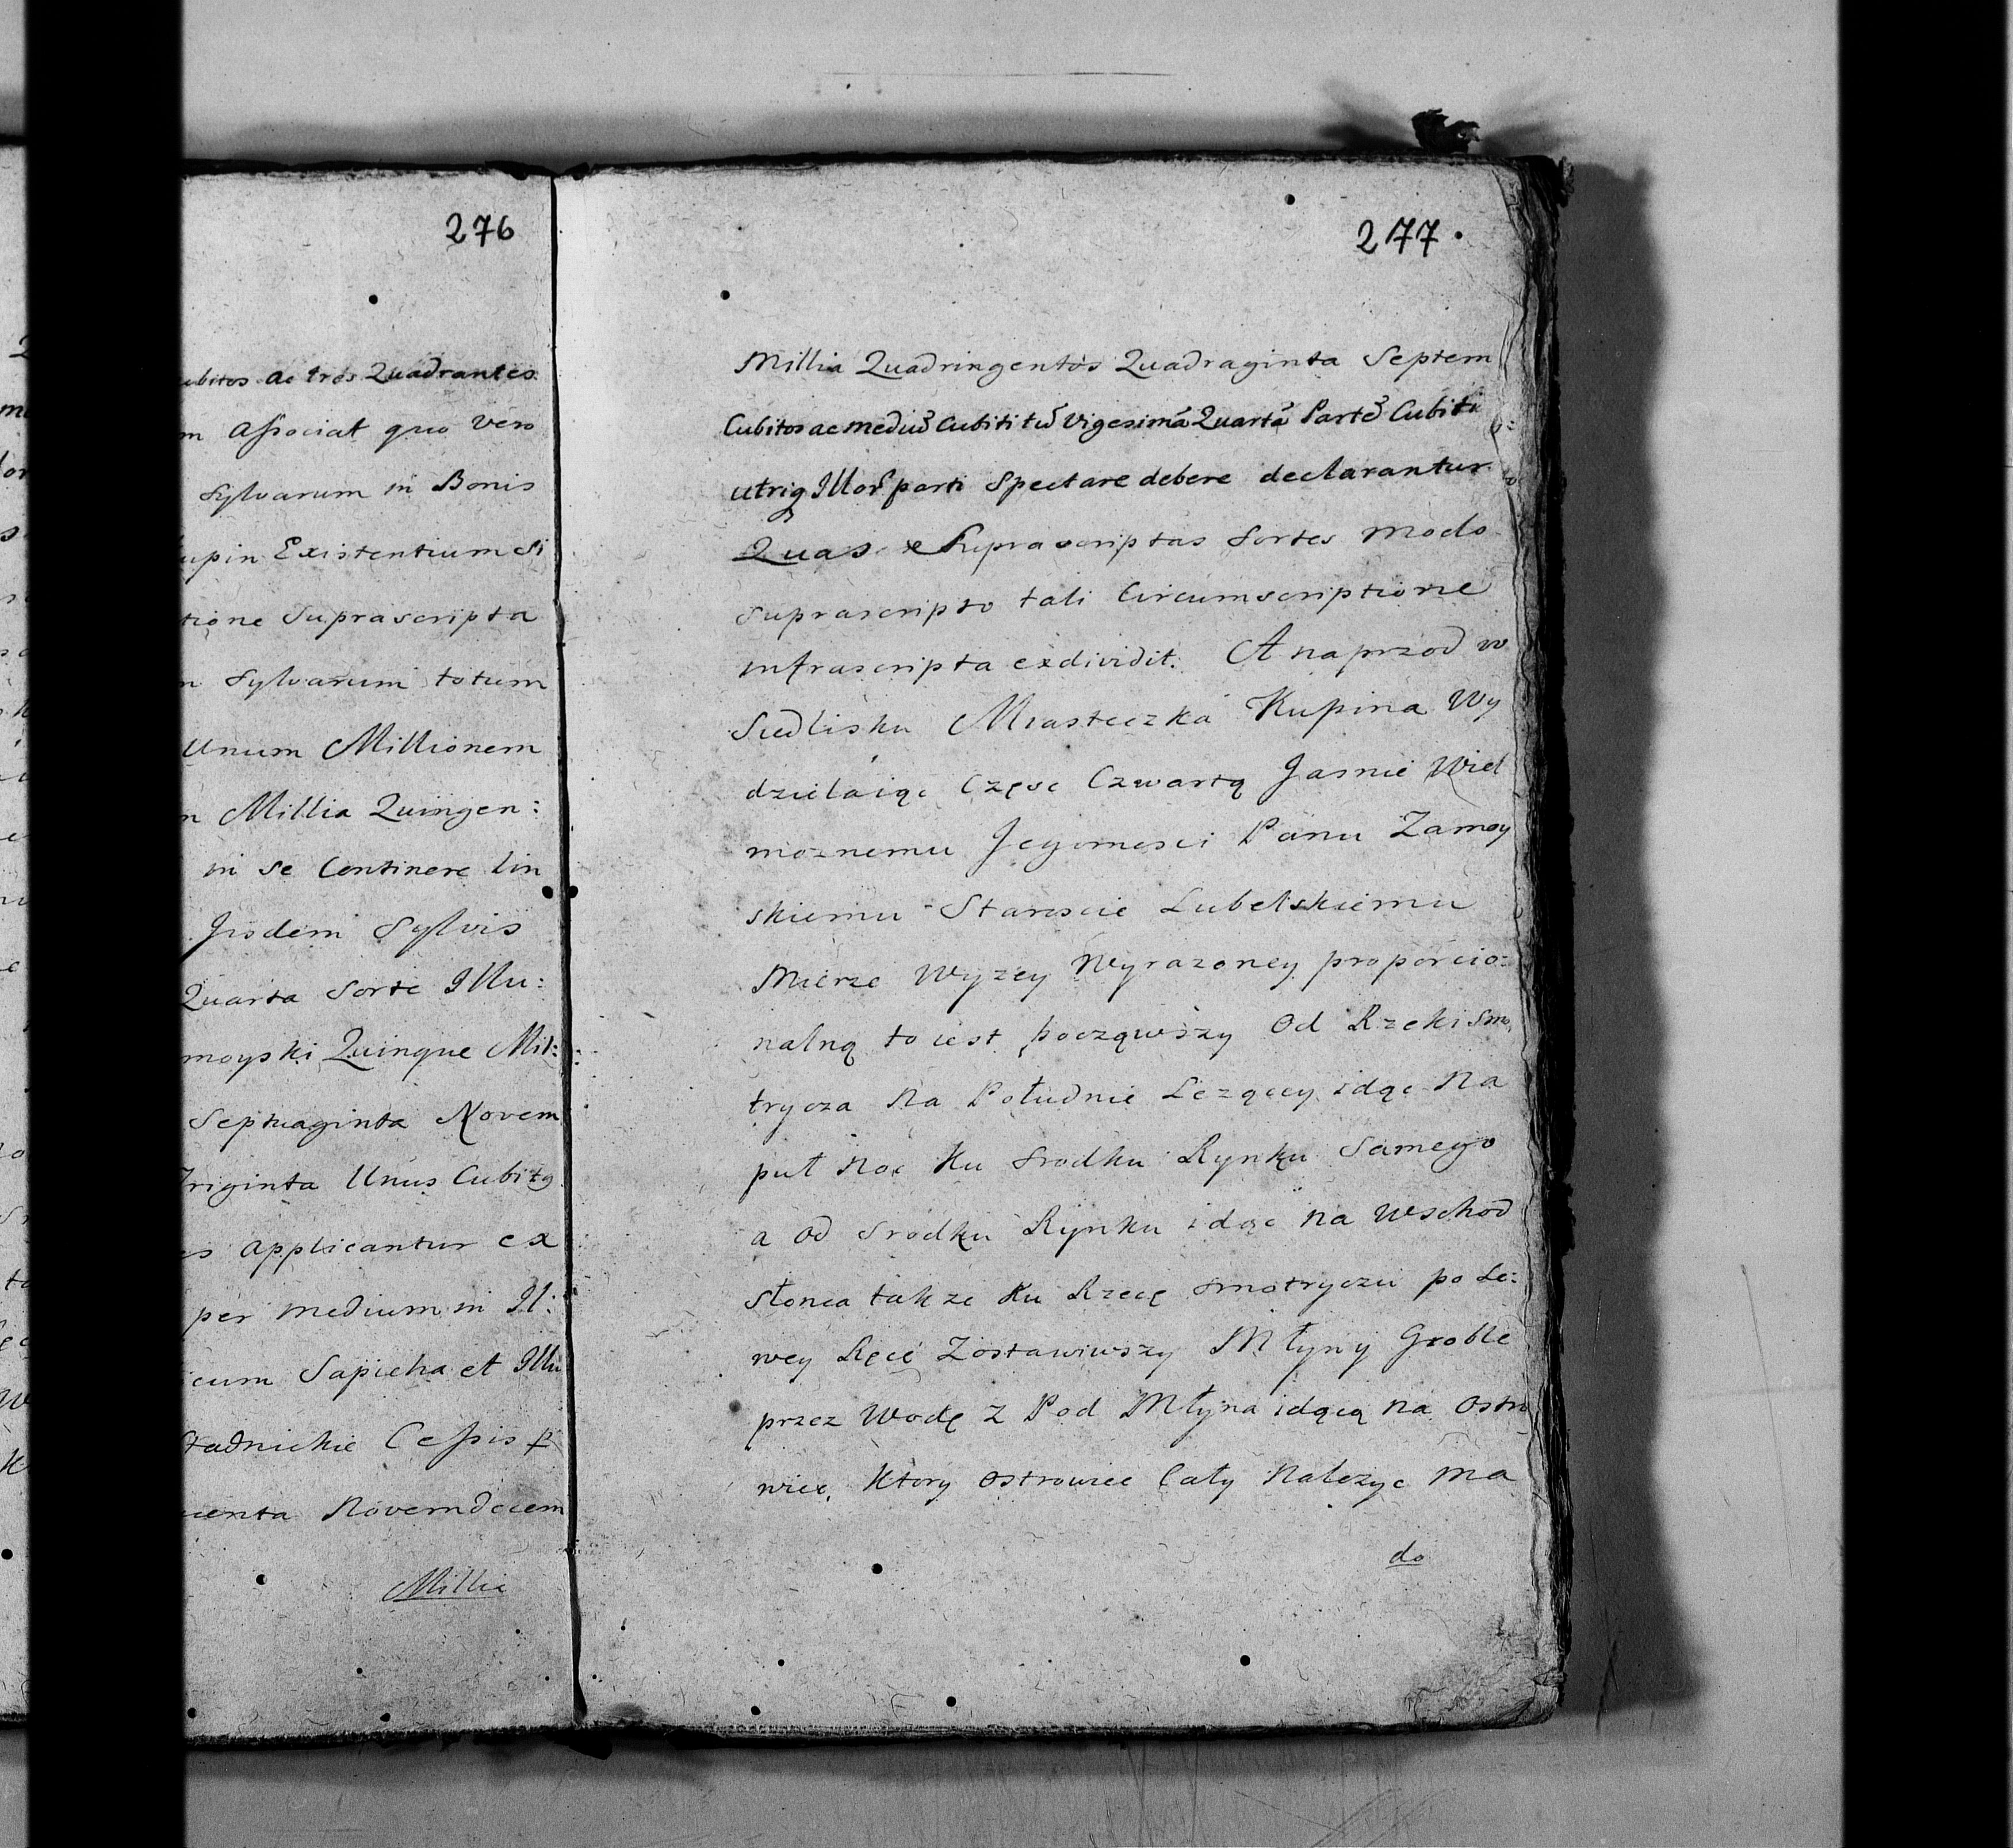 276
ac tres Quadrantes
Associat quo vero
Sylvarum in Bonis
Existentium Si
Suprascripta
Sylvarum totum
Unum Millionem
Millia Quingen:
in se Continere
Iisdem Sylvis
Quarta Sorte Illu:
moyski Quinque Mil:
Septuaginta Novem
Triginta Unus
Applicantur ex
per medium in Il:
Sapieha et Illu
Cessis
Novemdecem
Millia
277.
Millia Quadringentos Quadraginta Septem
Cubitos ac mediũ Cubiti tũ Vigesimã Quartã Partẽ Cubiti
parti Spectare debere declarantur
Quas Suprascriptas Sortes modo
suprascripto tali Circumscriptione
infrascripta exdividit. A naprzod w
Siedlisku Miasteczka Kupina Wy
dzielaiąc Częsc Czwartą Jasnie Wiel
moznemu Jegomosci Panu Zamoy
skiemu Staroscie Lubelskiemu
Mierze Wyzey Wyrazoney proporcio:
nalną to iest począwszy Od Rzeki Smo
trycza Na Południe Lezącey idąc Na
puł Noc Ku Srodku Rynku Samego
a od Srodku Rynku idąc na Wschod
słonca takze Ku Rzece Smotryczu po Le:
wey Ręce Zostawiwszy Młyny Groble
przez Wodę z Pod Młyna idącą na Ostro
wiec, Ktory Ostrowiec Cały Nalezyc ma
do